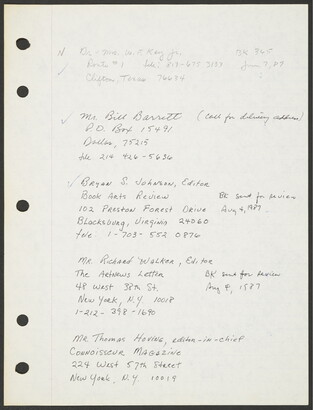 Dr. - Mrs. W. T. Kay, Jr. BK 865
Route #1 tele: 817-675-3193 June 7, 87
Clifton, Texas 76634
Mr. Bill Barrett (call for delivery address)
P.O. Box 15491
Dallas, 75215
tele 214 426-5636
Bryan S. Johnson, Editor
Book Arts Review BK sent for review
102 Preston Forest Drive Aug 4, 1987.
Blacksburg, Virginia 24060
tele: 1-703-552 0876
Mr. Richard Walker, Editor
The ArtNews Letter BK sent for review
48 West 38th St. Aug 4, 1987
New York, N.Y. 10018
1-212-398-1690
Mr. Thomas Hoving, editor-in-chief
Connoisseur Magazine
224 West 57th Street
New York, N.Y. 10019